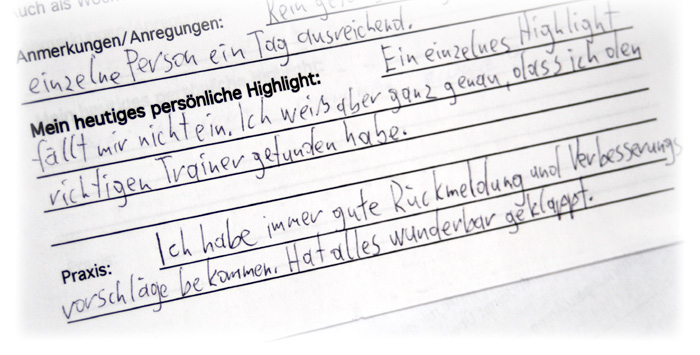 auch als Woc
Anmerkungen/Anregungen: Kein
einzelne Person ein Tag ausreichend.
Mein heutiges persönliche Highlight: Ein einzelnes Highlight
fällt mir nicht ein. Ich weiß aber ganz genau, dass ich den
richtigen Trainer gefunden habe.
Praxis: Ich habe immer gute Rückmeldung und Verbesserungs
vorschläge bekommen. Hat alles wunderbar geklappt.